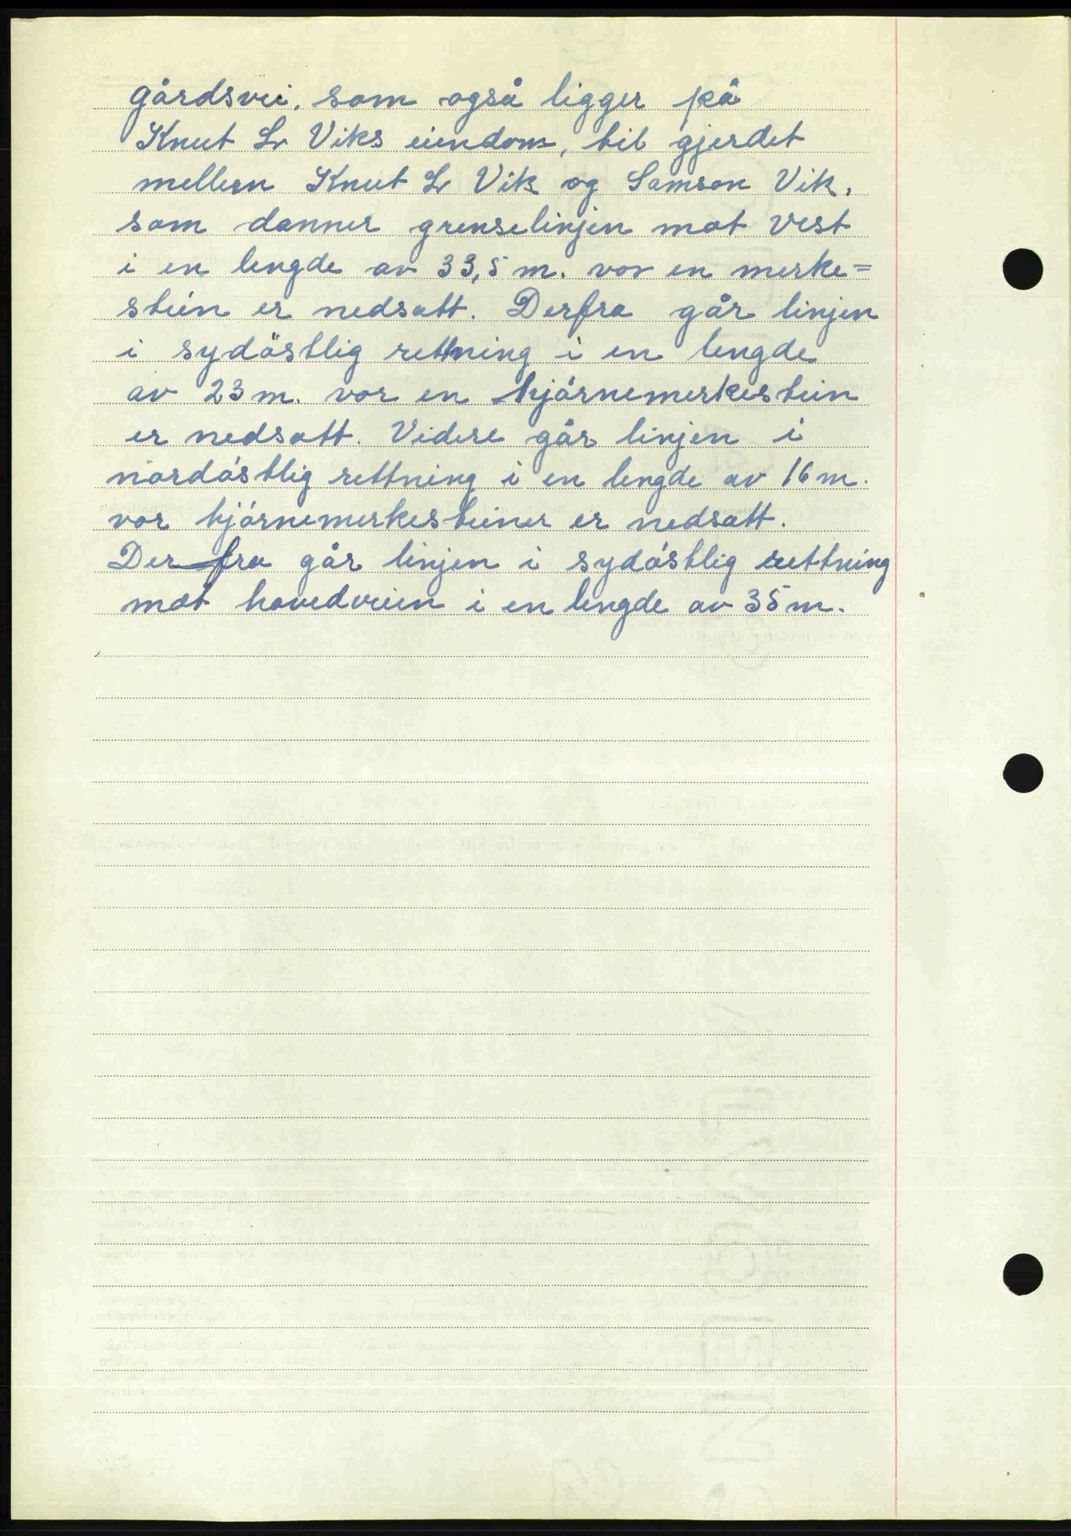 gårdsvei, som også ligger på
Knut L. Viks eiendom, til gjerdet
mellem Knut L. Vik og Samson Vik,
som danner grenselinjen mot vest
i en lengde av 33,5 m. vor en merke=
stein er nedsatt. Derfra går linjen
i sydöstlig rettning i en lengde
av 23 m. vor en hjórnemerkestein
er nedsatt. Videre går linjen i
nordóstlig rettning i en lengde av 16 m.
vor hjórnemerkesteiner er nedsatt.
Derfra går linjen i sydóstlig rettning
mot hovedveien i en lengde av 35 m.